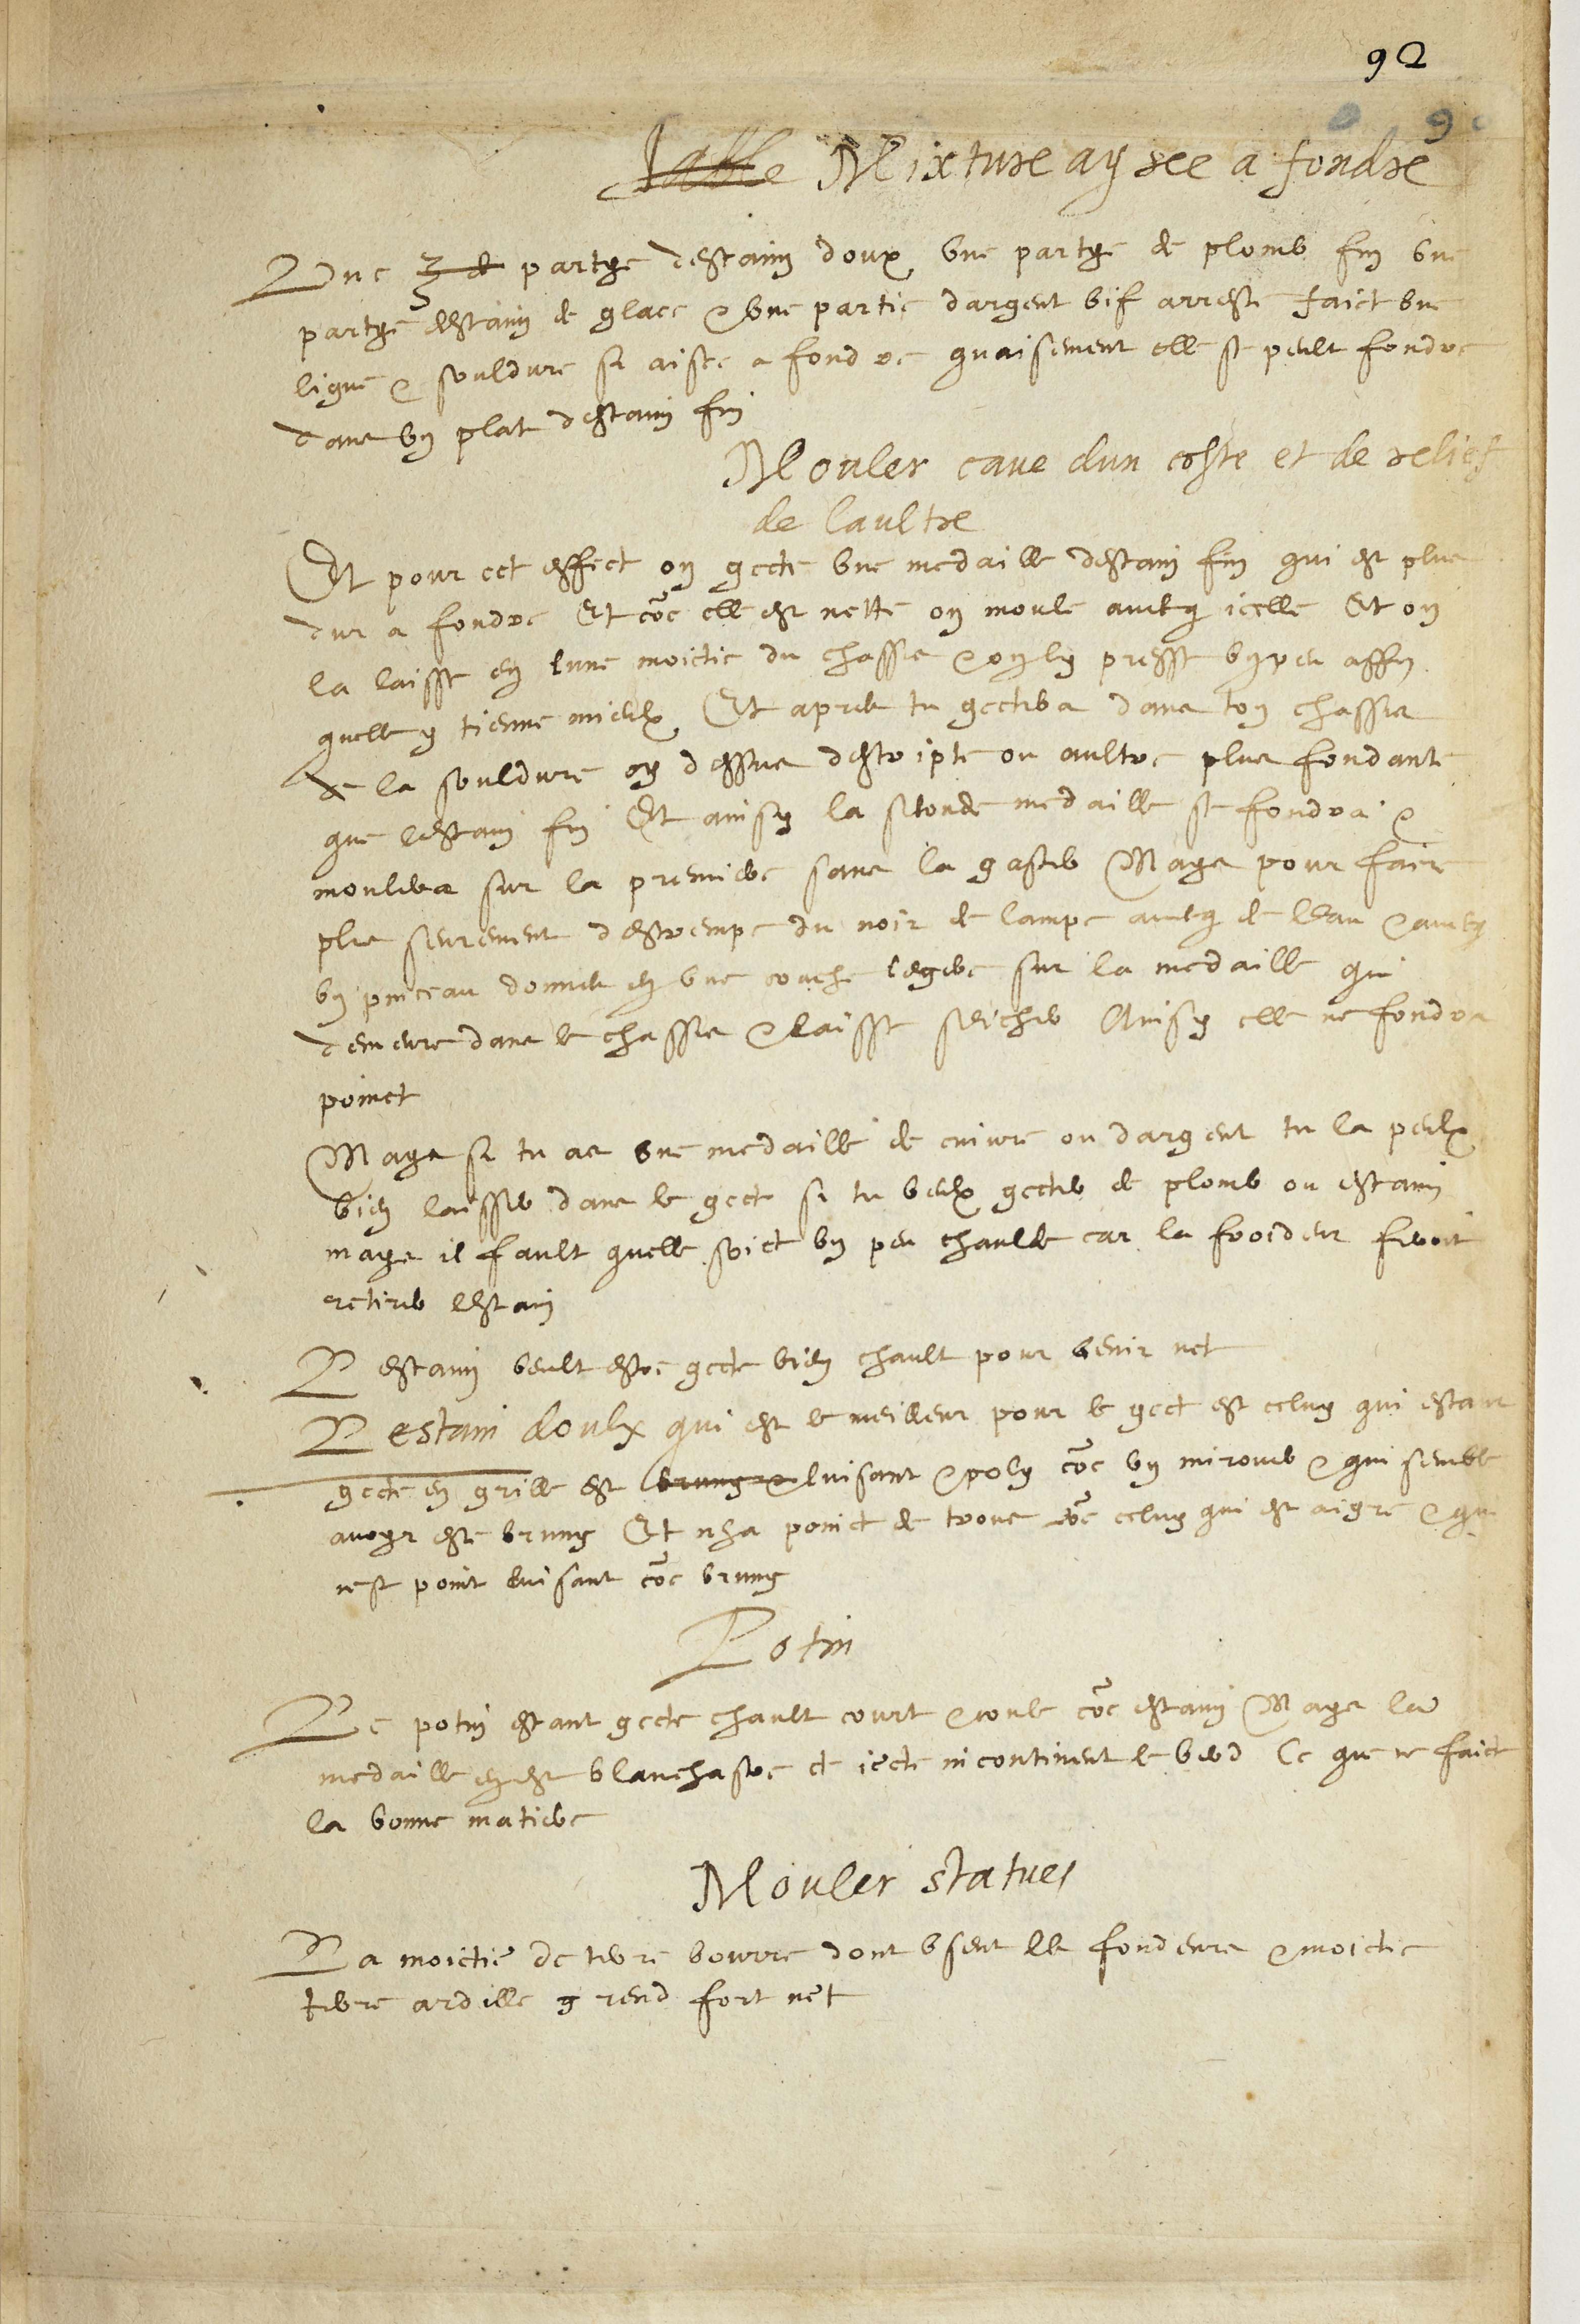 92
9
Sable Mixture aysee a fondre
Une ʒ de partye destaim doux une partye de plomb fin une
partye destaim de glace & une partie dargent vif arreste faict une
ligue & souldure si aisee a fondre quaisement elle se peult fondre
dans un plat destaim fin
Mouler cave dun coste et de relief
de laultre
Et pour cet effect on gecte une medaille destaim fin qui est plus
dur a fondre Et coe elle est nette on moule avecq icelle Et on
la laisse en lune moictie du chassis & on ly presse un peu affin
quelle y tienne mieulx Et apres tu gecteras dans ton chassis
de la souldure cy dessus descripte ou aultre plus fondante
que lestaim fin Et ainsy la seconde medaille se fondra &
moulera sur la premiere sans la gaster Mays pour faire
plus seurement destrempe du noir de lampe avecq de leau & avecq
un pinceau donnes en une couche legere sur la medaille qui
demeure dans le chassis & laisse seicher Ainsy elle ne fondra
poinct
Mays si tu as une medaille de cuivre ou dargent tu la peulx
bien laisser dans le gect si tu veulx gecter de plomb ou estaim
mays il fault quelle soict un peu chaulde car la froideur feroit
retirer lestain
Lestaim veult estre gecte bien chault pour venir net
Lestain doulx qui est le meilleur pour le gect est celuy qui estant
gecte en grille est bruny & luisant & poly coe un mirouer & qui semble
avoyr este bruny Et nha poinct de trous coe celuy qui est aigre & qui
nest point luisant coe bruny
Potin
Le potin estant gecte chault court & coule coe estaim Mays la
medaille en est blanchastre et iecte incontinent le verd Ce que ne faict
la bonne matiere
Mouler statues
La moictie de terre bourre dont usent les fondeurs & moictie
terre ardille y rend fort net